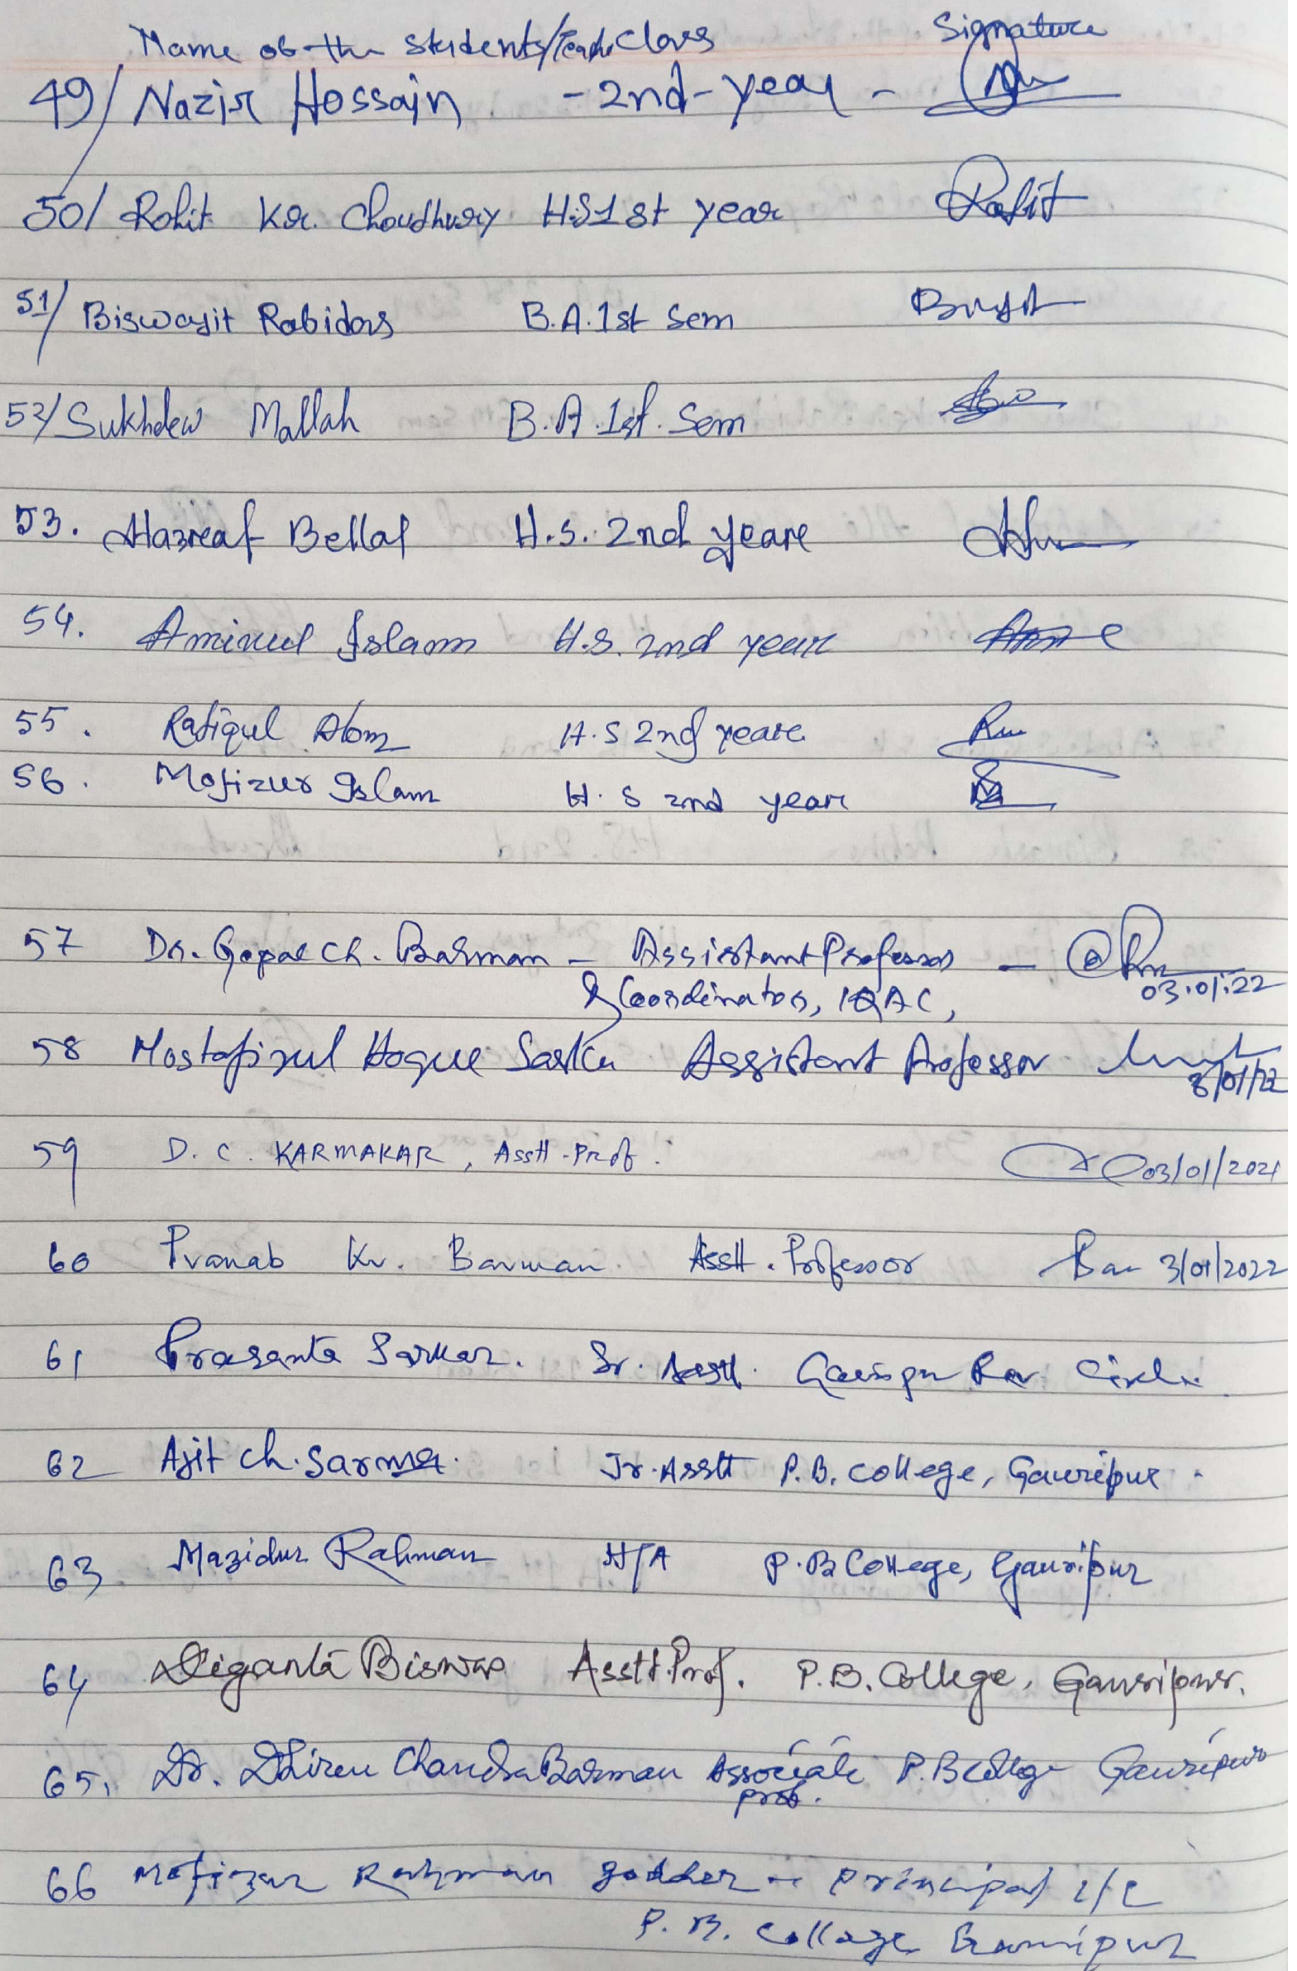 Name of the Students/Teach Class Signature
49/ Nazir Hossain - 2nd-year -
50/ Rohit Kr. Choudhury H.S 1st year Rohit
51/ Biswajit Rabidas B.A. 1st Sem
52/ Sukhdew Mallah B.A. 1st. Sem
53. Hazreaf Bellal H.S. 2nd yeare
54. Aminul Islam H.S. 2nd year
55. Rafiqul Alom H.S 2nd yeare
56. Mofizur Islam H.S 2nd year
57 Dr. Gopal Ch. Barman - Assistant Professor -
& Coordinator, IQAC, 03.01.22
58 Mostafizul Hoque Sarkar Assistant Professor
3/01/22
59 D. C. KARMAKAR, Asstt-Prof. 03/01/2021
60 Pranab Kr. Barman. Asstt. Professor 3/01/2022
61 Prasanta Sarkar. Sr. Asstt. Gauripur Rev. Circle.
62 Ajit Ch. Sarma. Jr. Asstt P.B. College, Gauripur.
63 Mazidur Rahman H/A P.B College, Gauripur
64 Diganta Biswas Asstt. Prof. P.B. College, Gauripur.
65. Dr. Dhiren Chandra Barman Associate P.B College Gauripur
prof.
66 Mofizur Rahman - Principal I/C
P. B. College Gauripur